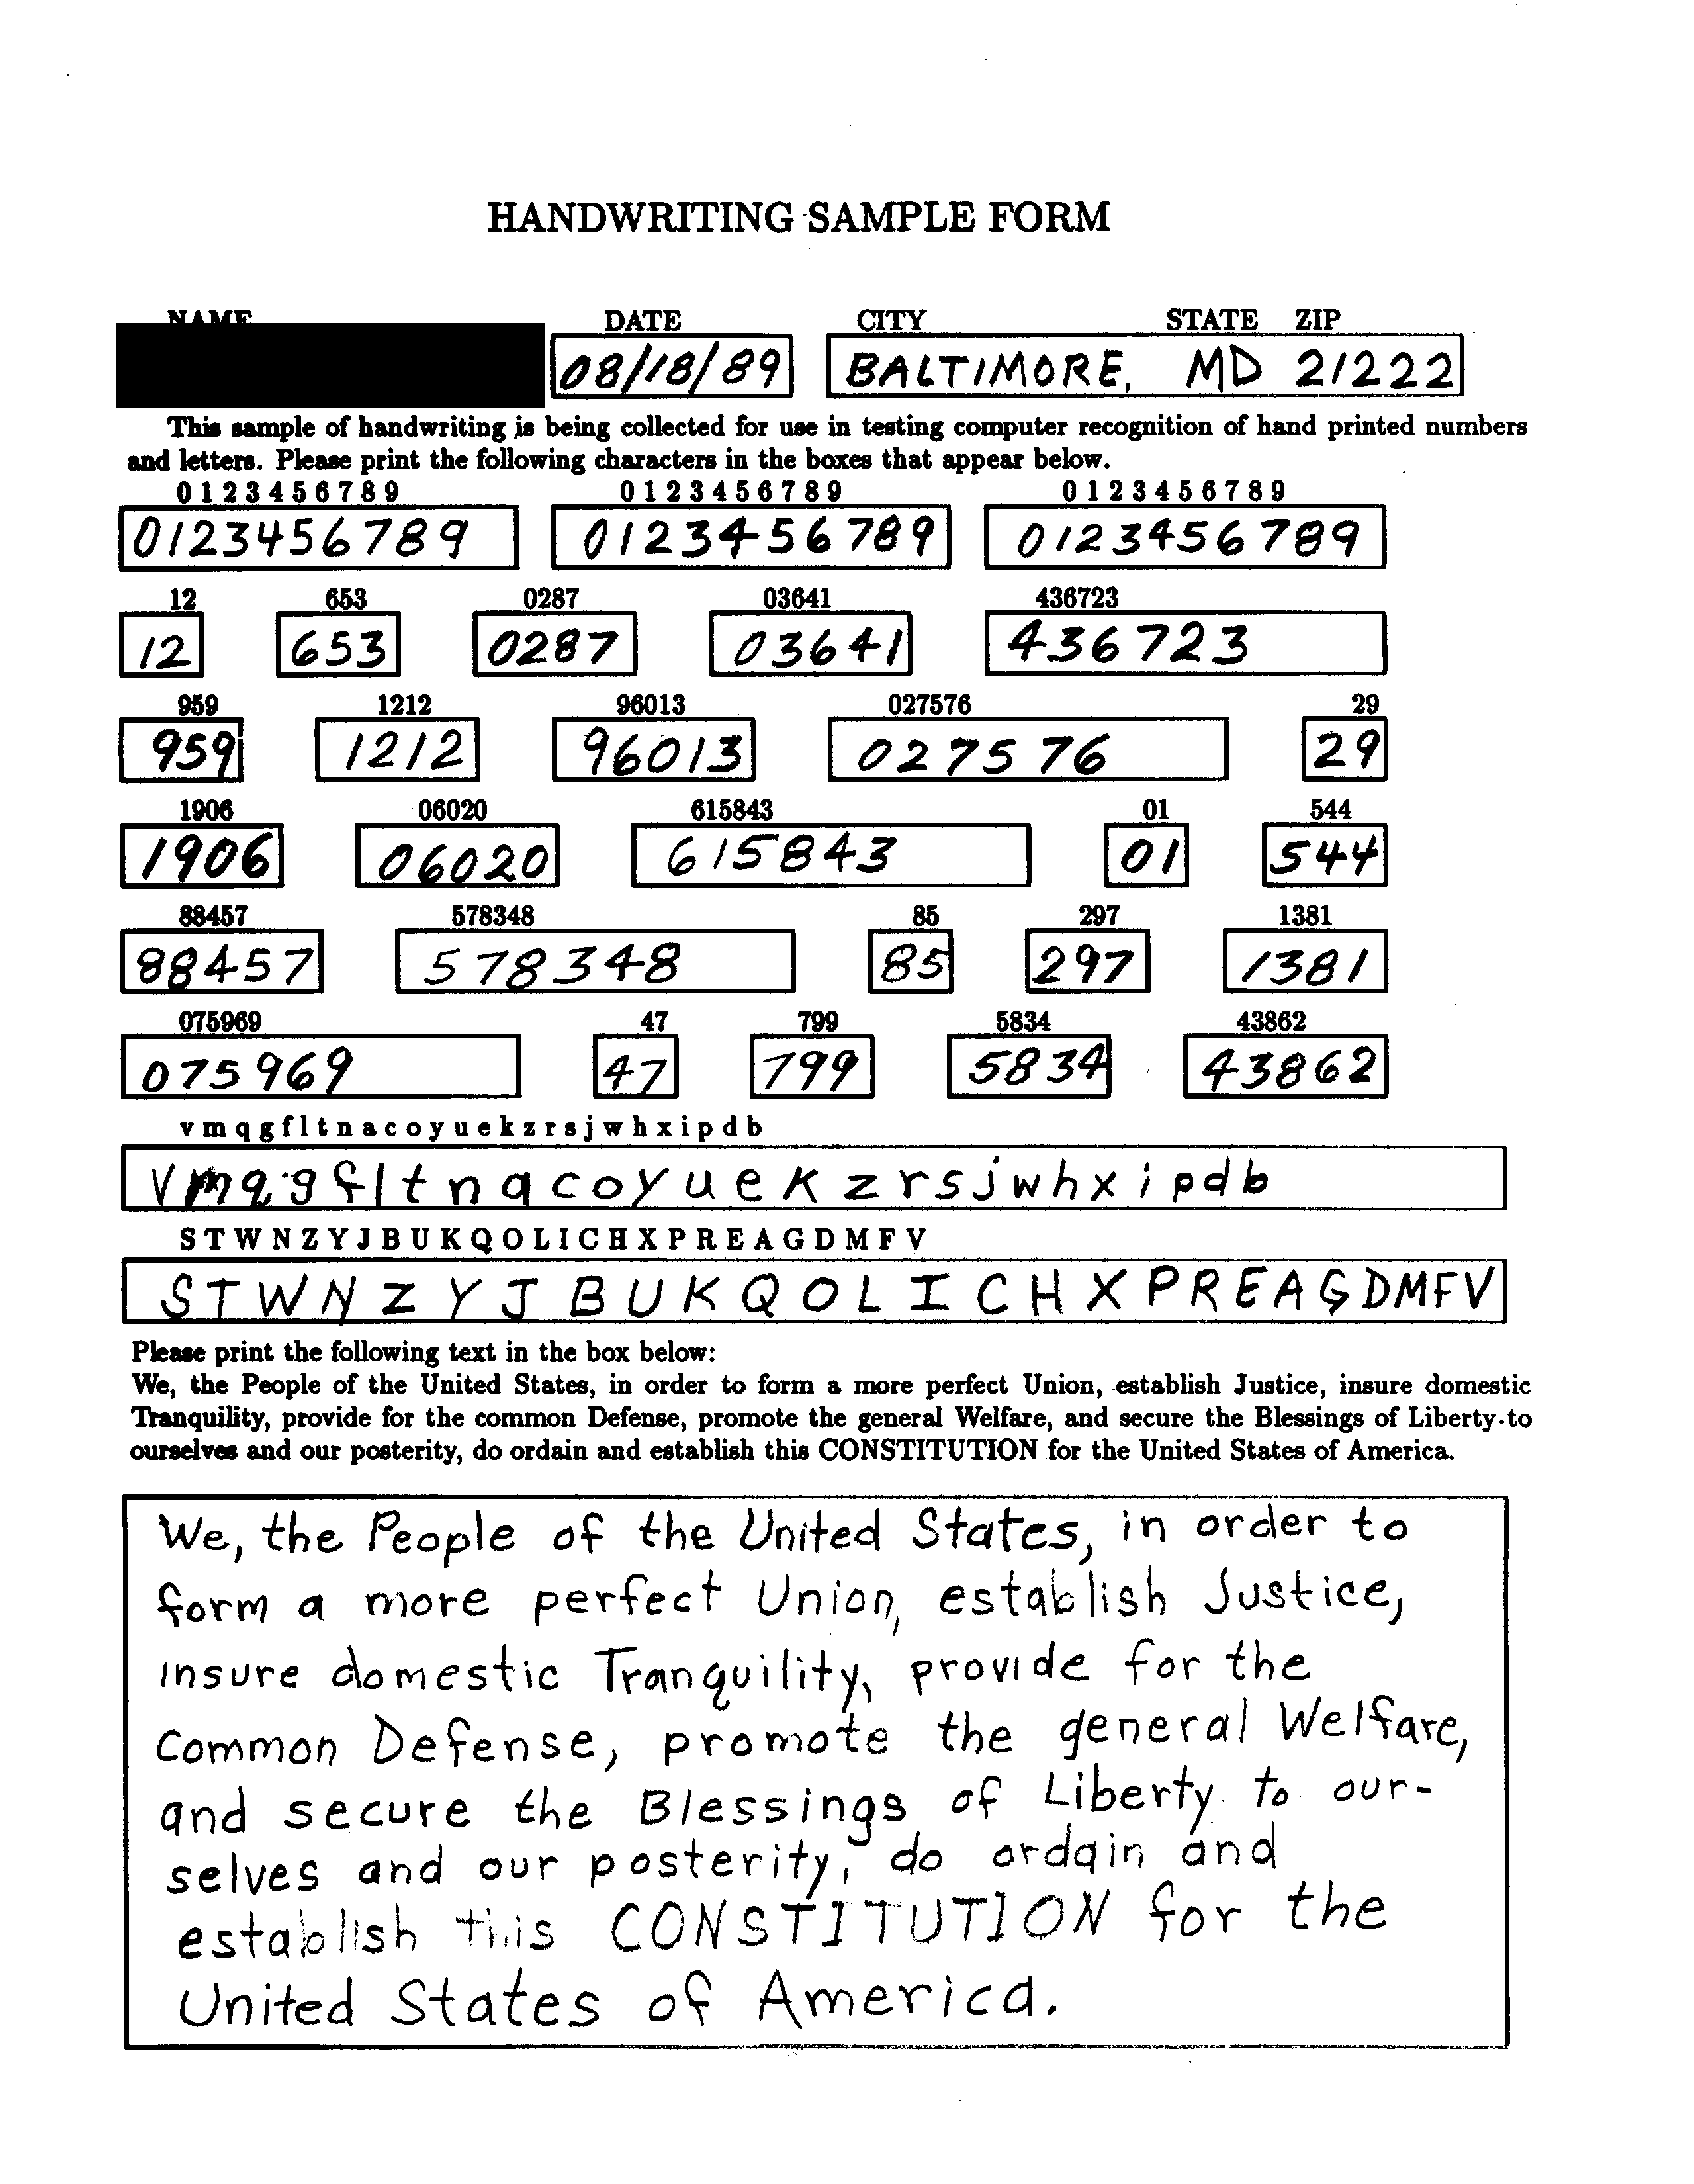 HANDWRITING SAMPLE FORM
NAME DATE CITY STATE ZIP
08/18/89 BALTIMORE, MD 21222
This sample of handwriting is being collected for use in testing computer recognition of hand printed numbers
and letters. Please print the following characters in the boxes that appear below.
0 1 2 3 4 5 6 7 8 9 0 1 2 3 4 5 6 7 8 9 0 1 2 3 4 5 6 7 8 9
0123456789 0123456789 0123456789
12 653 0287 03641 436723
12 653 0287 03641 436723
959 1212 96013 027576 29
959 1212 96013 027576 29
1906 06020 615843 01 544
1906 06020 615843 01 544
88457 578348 85 297 1381
88457 578348 85 297 1381
075969 47 799 5834 43862
075969 47 799 5834 43862
v m q g f l t n a c o y u e k z r s j w h x i p d b
v m q g f l t n a c o y u e k z r s j w h x i p d b
S T W N Z Y J B U K Q O L I C H X P R E A G D M F V
S T W N Z Y J B U K Q O L I C H X P R E A G D M F V
Please print the following text in the box below:
We, the People of the United States, in order to form a more perfect Union, establish Justice, insure domestic
Tranquility, provide for the common Defense, promote the general Welfare, and secure the Blessings of Liberty to
ourselves and our posterity, do ordain and establish this CONSTITUTION for the United States of America.
We, the People of the United States, in order to
form a more perfect Union, establish Justice,
insure domestic Tranquility, provide for the
common Defense, promote the general Welfare,
and secure the Blessings of Liberty to our-
selves and our posterity, do ordain and
establish this CONSTITUTION for the
United States of America.